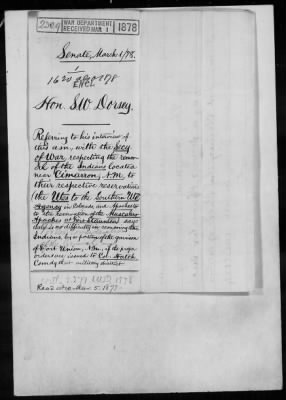 WAR DEPARTMENT
RECEIVED MAR 1
1878
Senate, March 1/78.
1
ENCL
Hon. S.W. Dorsey.
Referring to his interview of
this a.m., with the Secy
of War, respecting the remo-
val of the Indians located
near Cimarron, N.M., to
their respective reservations
(the Utes to the Southern Ute
Agency in Colorado and Apaches
to the reservation of the Mescalero
Apaches at Fort Stanton) says
there is no difficulty in removing the
Indians, by a portion of the garrison
of Fort Union, N.M., if the proper
orders are issued to Col. Hatch,
Comdg that military district
1878
Mar. 5. 1878.